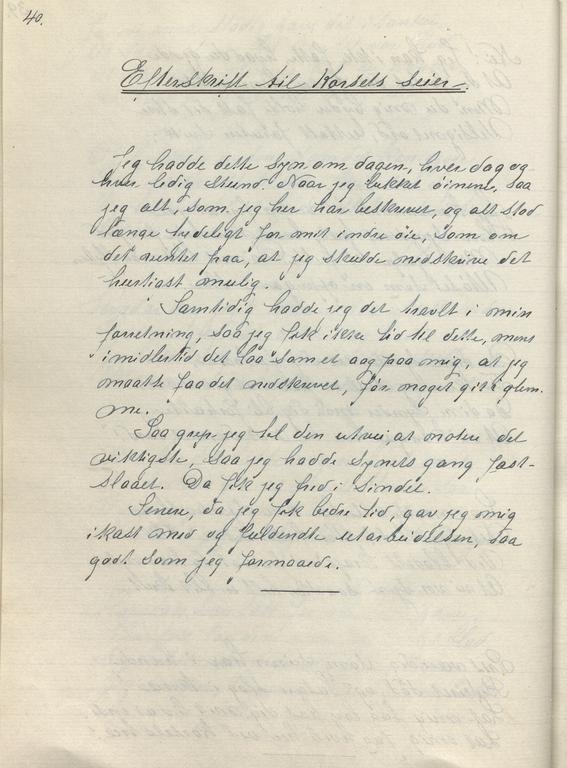 40.
Efterskrift til Korsets Seier.
Jeg hadde dette syn om dagen, hver dag og
hver ledig stund. Naar jeg lukket öinene, saa
jeg alt, som jeg her har beskrevet, og alt stod
længe tydeligt for mit indre öie, som om
det ventet paa, at jeg skulde nedskrive det
hurtigst mulig.
Samtidig hadde jeg det travlt i min
forretning, saa jeg fik ikke tid til dette, mens
imidlertid det laa som et aag paa mig, at jeg
maatte faa det nedskrevet, før noget git i glem-
me.
Saa grep jeg til den utvei, at notere det
viktigste, saa jeg hadde synets gang fast-
slaaet. Da fik jeg fred i sindet.
Senere, da jeg fik bedre tid, gav jeg mig
ikast med og fuldendte utarbeidelsen, saa
godt som jeg formaaede.